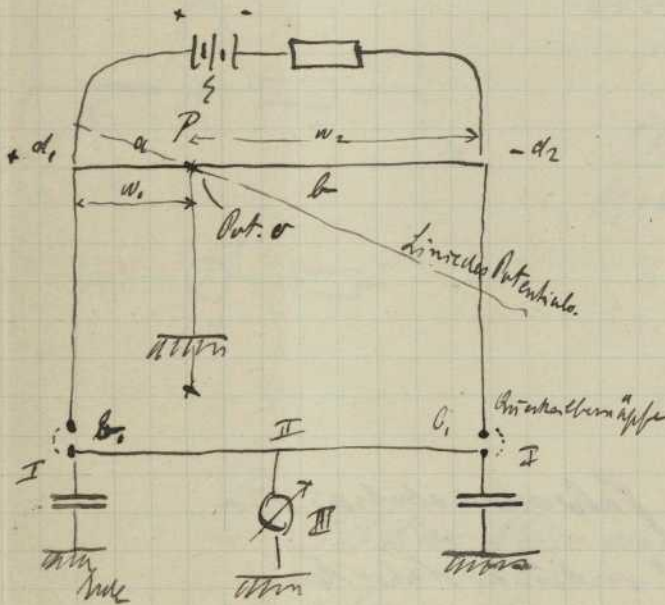 + -
ξ
P
w₂
+ d₁
a
- d₂
w₁
b
Pot. 0
Linie des Potentials.
b₁
II
C₁
Quecksilbernäpfe
I
I
III
Erde